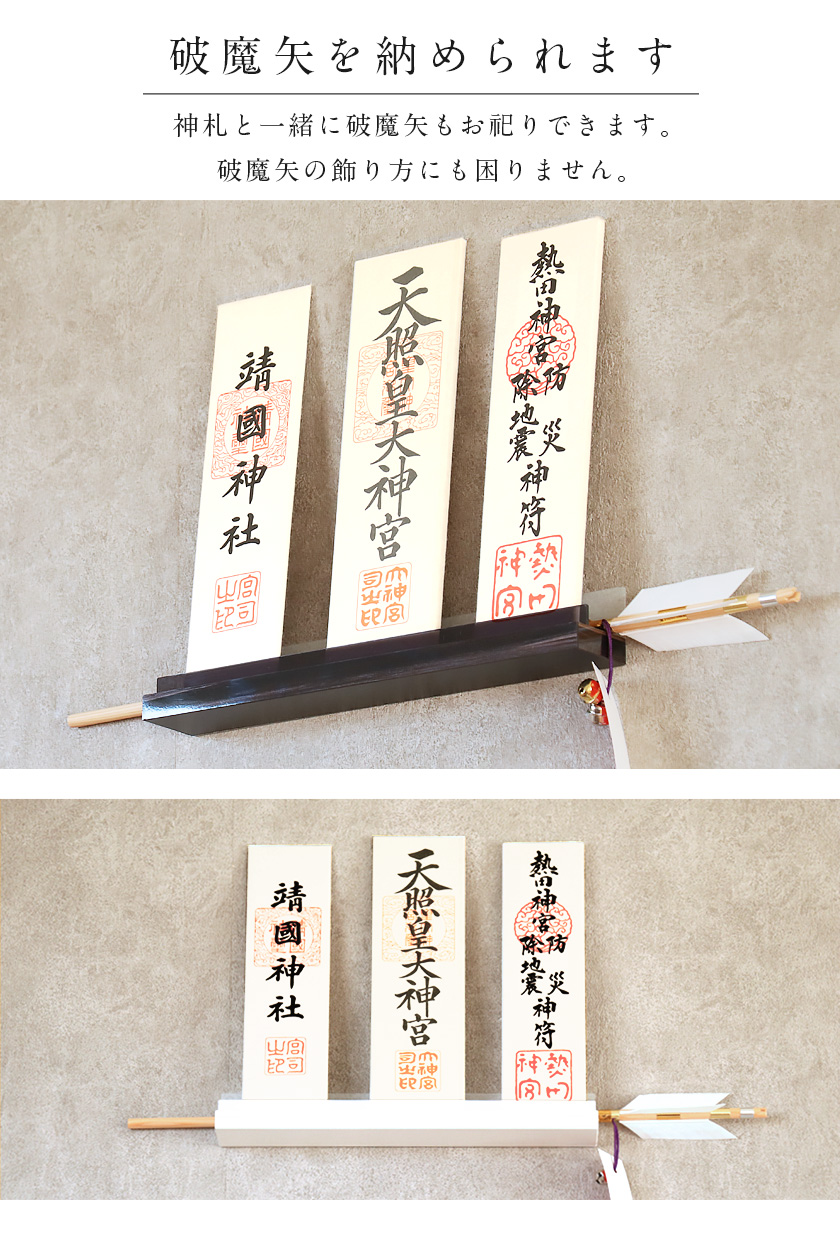 破魔矢を納められます
神札と一緒に破魔矢もお祀りできます。
破魔矢の飾り方にも困りません。
靖國神社
宮司之印
天照皇大神宮
大神宮司之印
熱田神宮
防災
除地震
神符
熱田神宮
靖國神社
宮司之印
天照皇大神宮
大神宮司之印
熱田神宮
防災
除地震
神符
熱田神宮